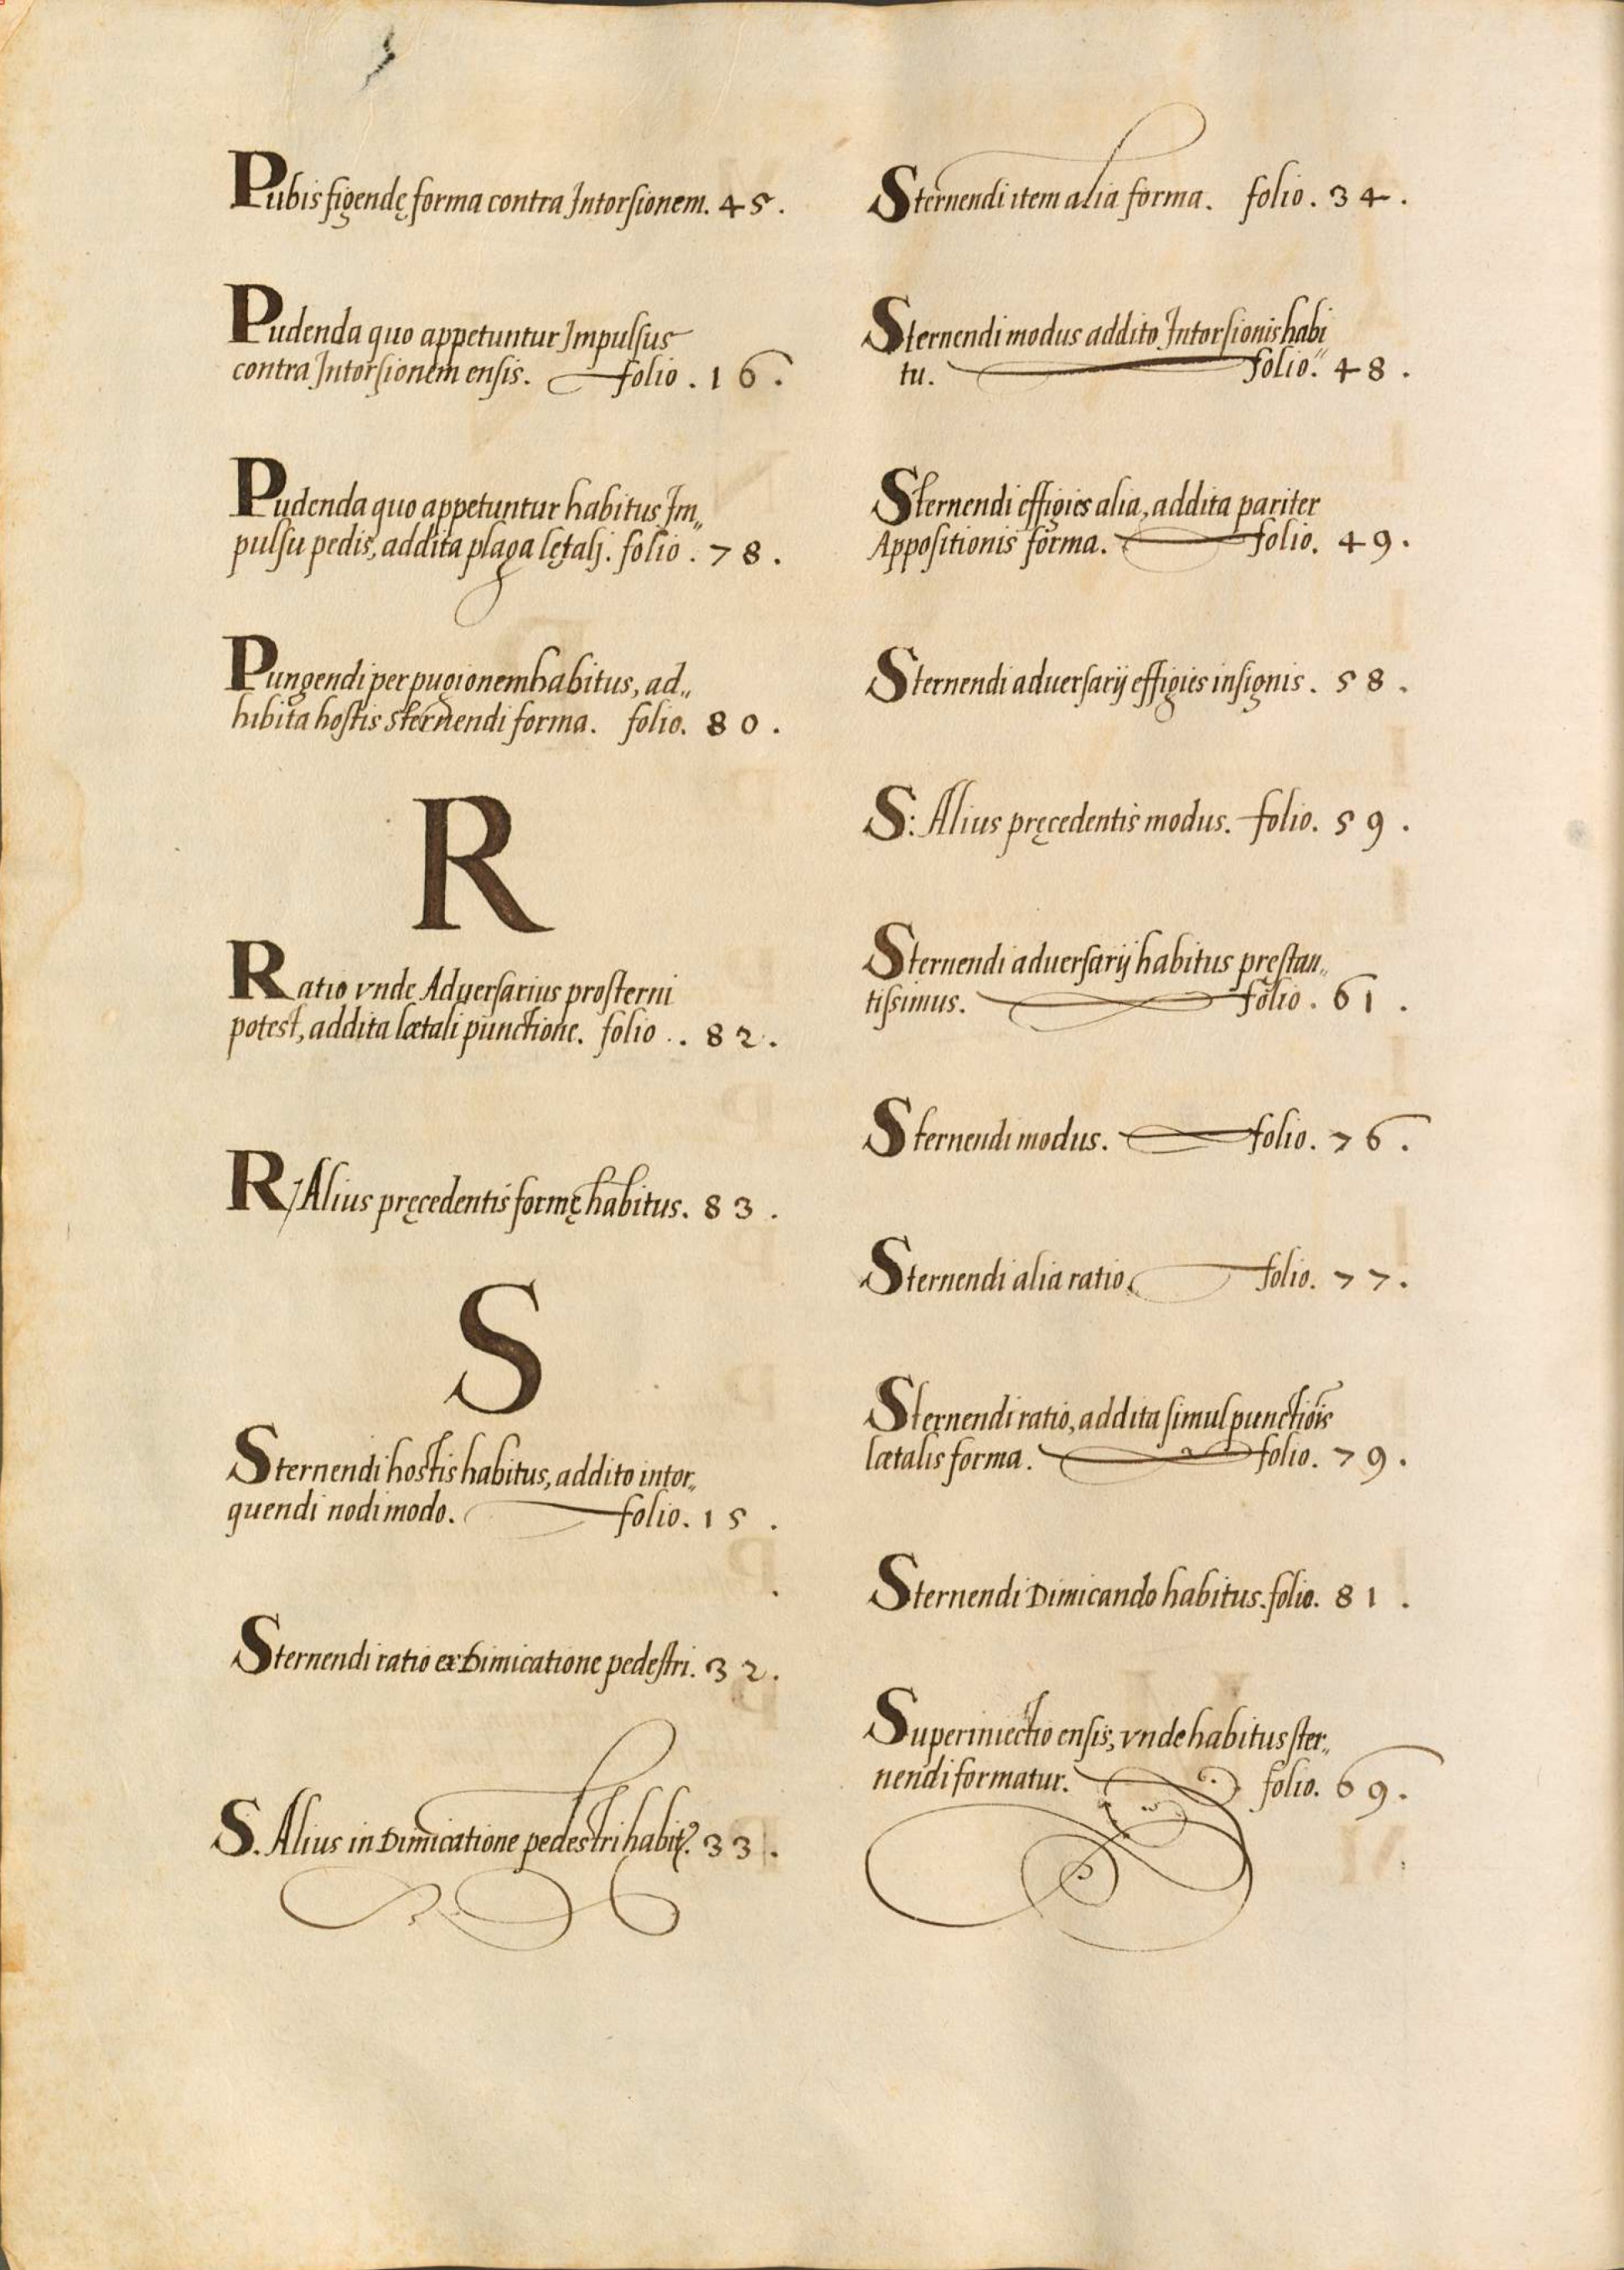 Pubis figendę forma contra Intorsionem. 45.
Pudenda quo appetuntur Impulsus
contra Intorsionem ensis. folio . 16.
Pudenda quo appetuntur habitus, Im„
pulsu pedis, addita plaga lętalj. folio . 78.
Pungendi per pugionem habitus, ad„
hibita hostis sternendi forma. folio. 80.
R
Ratio vnde Adversarius prosterni
potest, addita lætali punctione. folio .. 82.
R/Alius pręcedentis formę habitus. 83.
S
Sternendi hostis habitus, addito intor„
quendi nodi modo. folio. 15.
Sternendi ratio ex Dimicatione pedestri. 32.
S. Alius in Dimicatione pedestri habitꝰ. 33.
Sternendi item alia forma. folio. 34.
Sternendi modus addito Intorsionis habi„
tu. folio. 48.
Sternendi effigies alia, addita pariter
Appositionis forma. folio. 49.
Sternendi aduersarij effigies insignis. 58.
S: Alius pręcedentis modus. folio. 59.
Sternendi aduersarij habitus pręstan„
tissimus. folio. 61.
Sternendi modus. folio. 76.
Sternendi alia ratio. folio. 77.
Sternendi ratio, addita simul punctiōis
lætalis forma. folio. 79.
Sternendi Dimicando habitus. folio. 81.
Superiniectio ensis, vnde habitus ster„
nendi formatur. folio. 69.